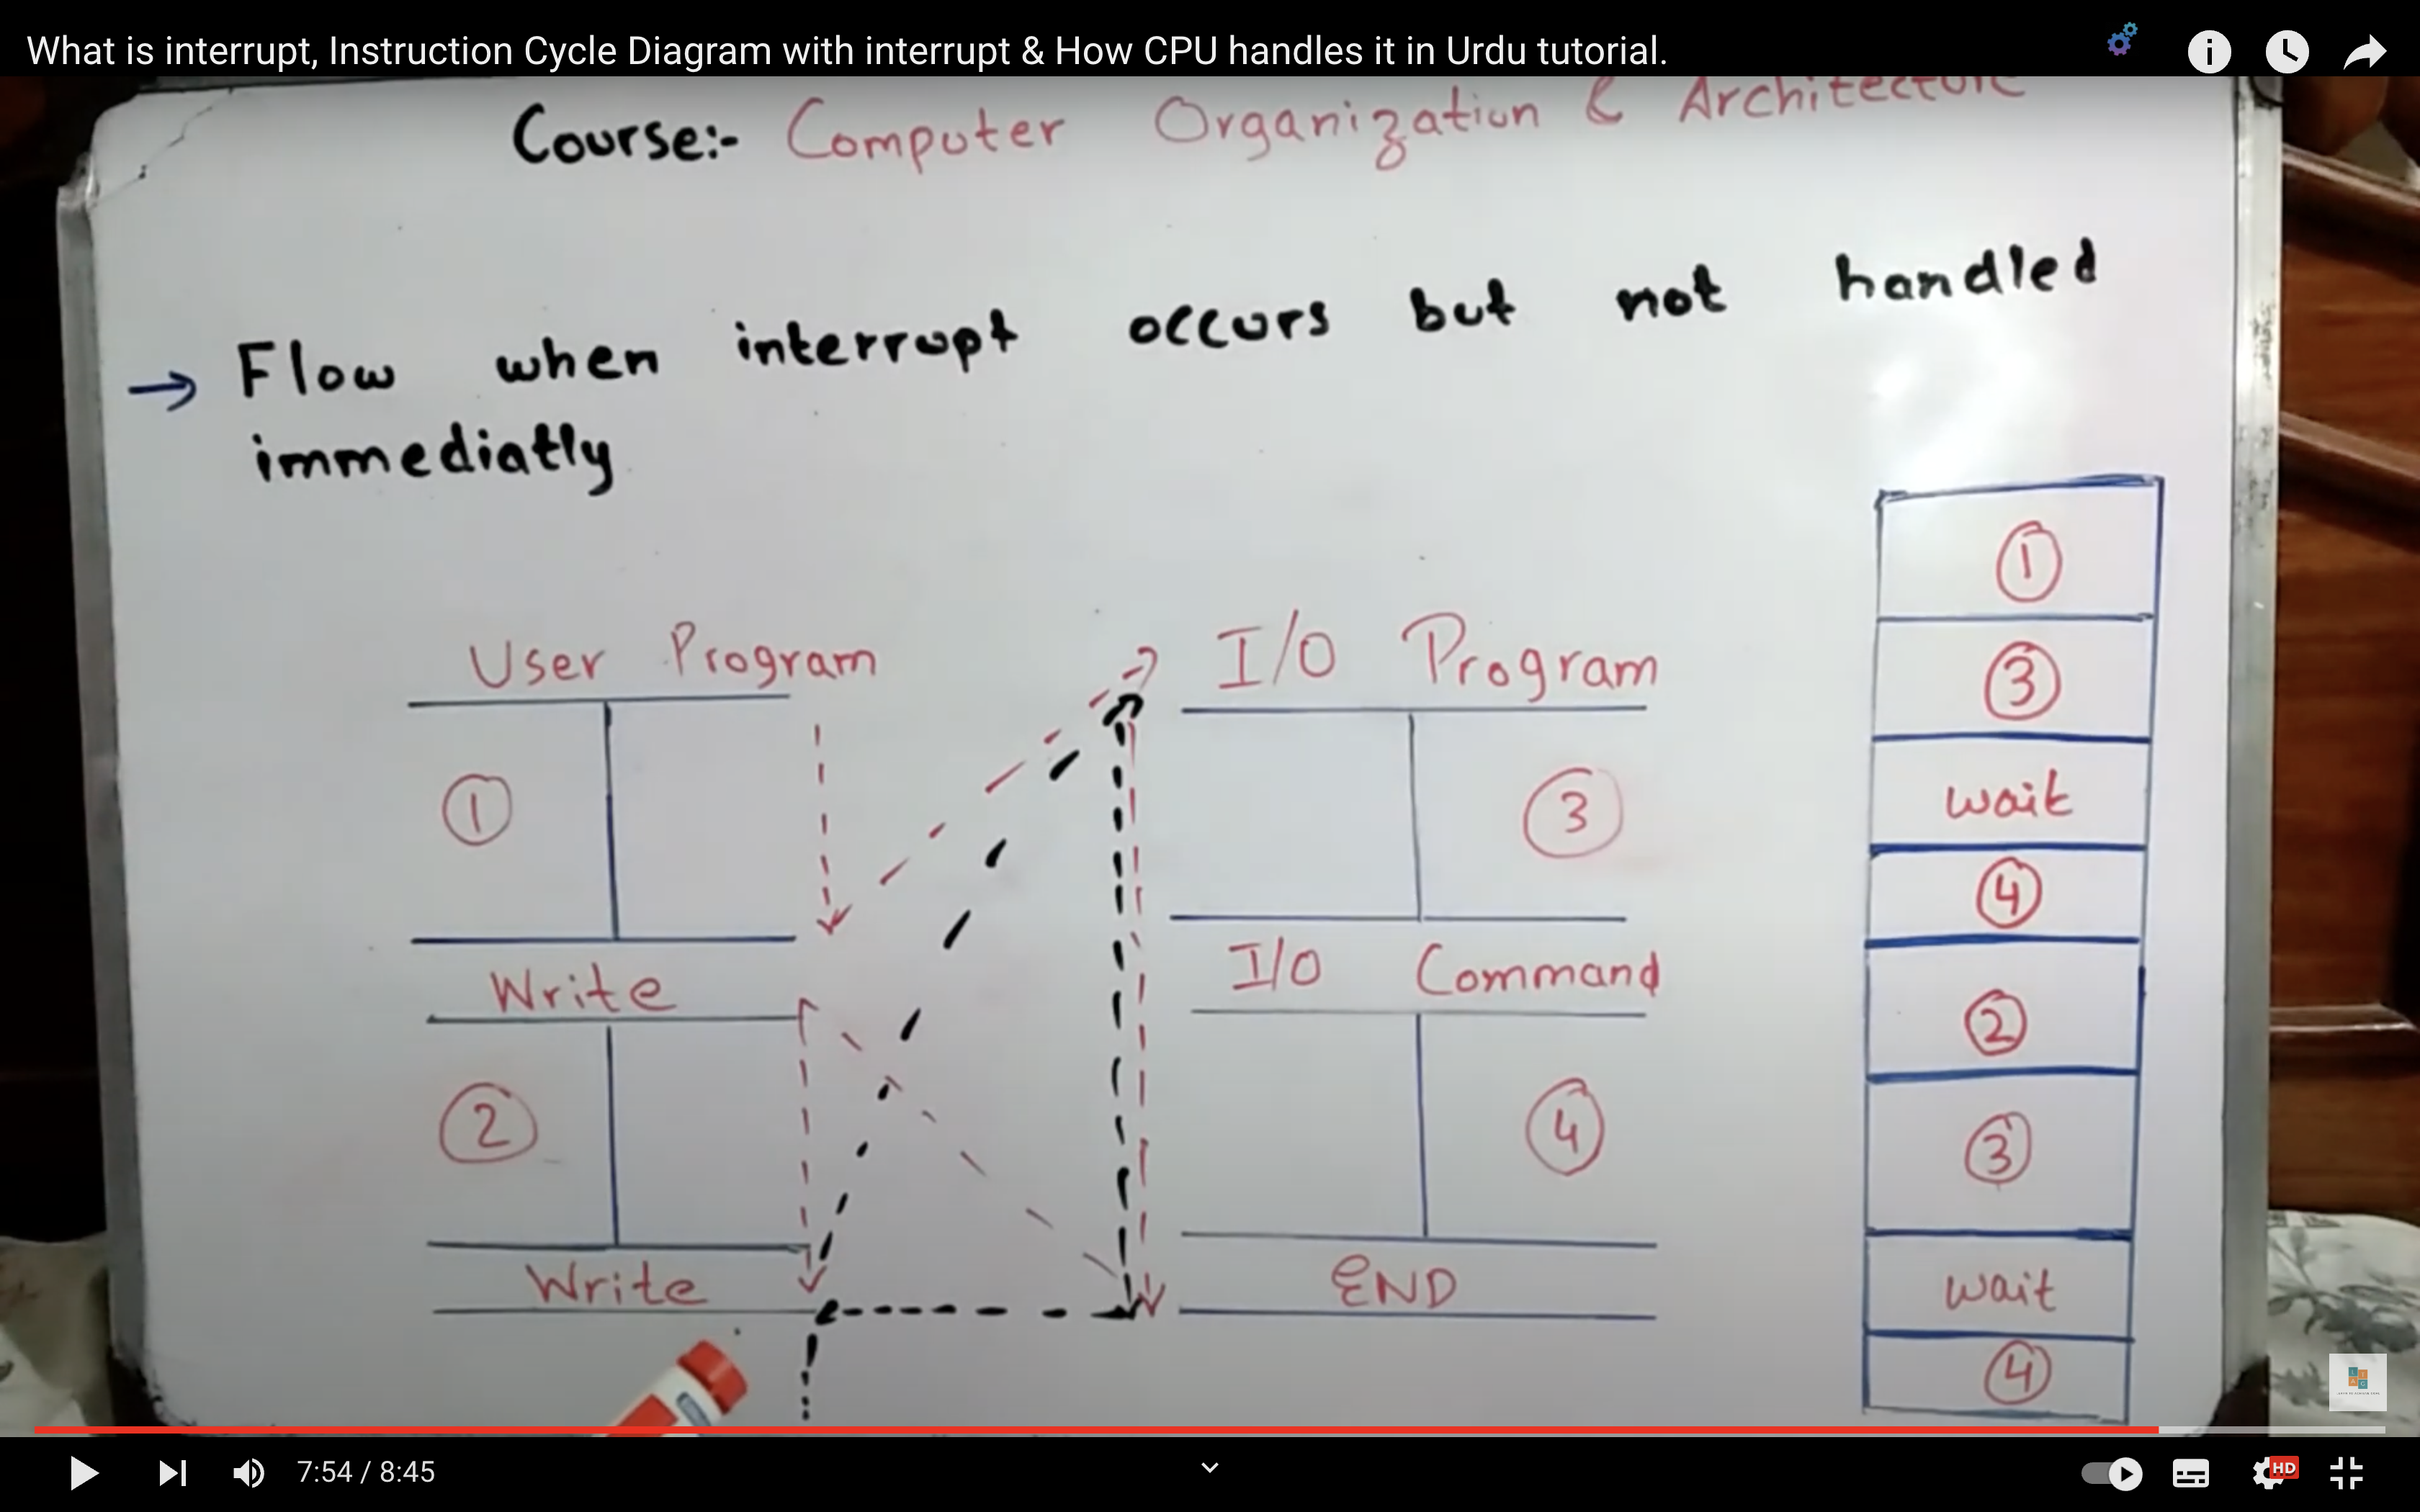 What is interrupt, Instruction Cycle Diagram with interrupt & How CPU handles it in Urdu tutorial.
Course:- Computer Organization & Architecture
→ Flow when interrupt occurs but not handled
immediatly
User Program
1
Write
2
Write
I/O Program
3
I/O Command
4
END
1
3
wait
4
2
3
wait
4
7:54 / 8:45
HD